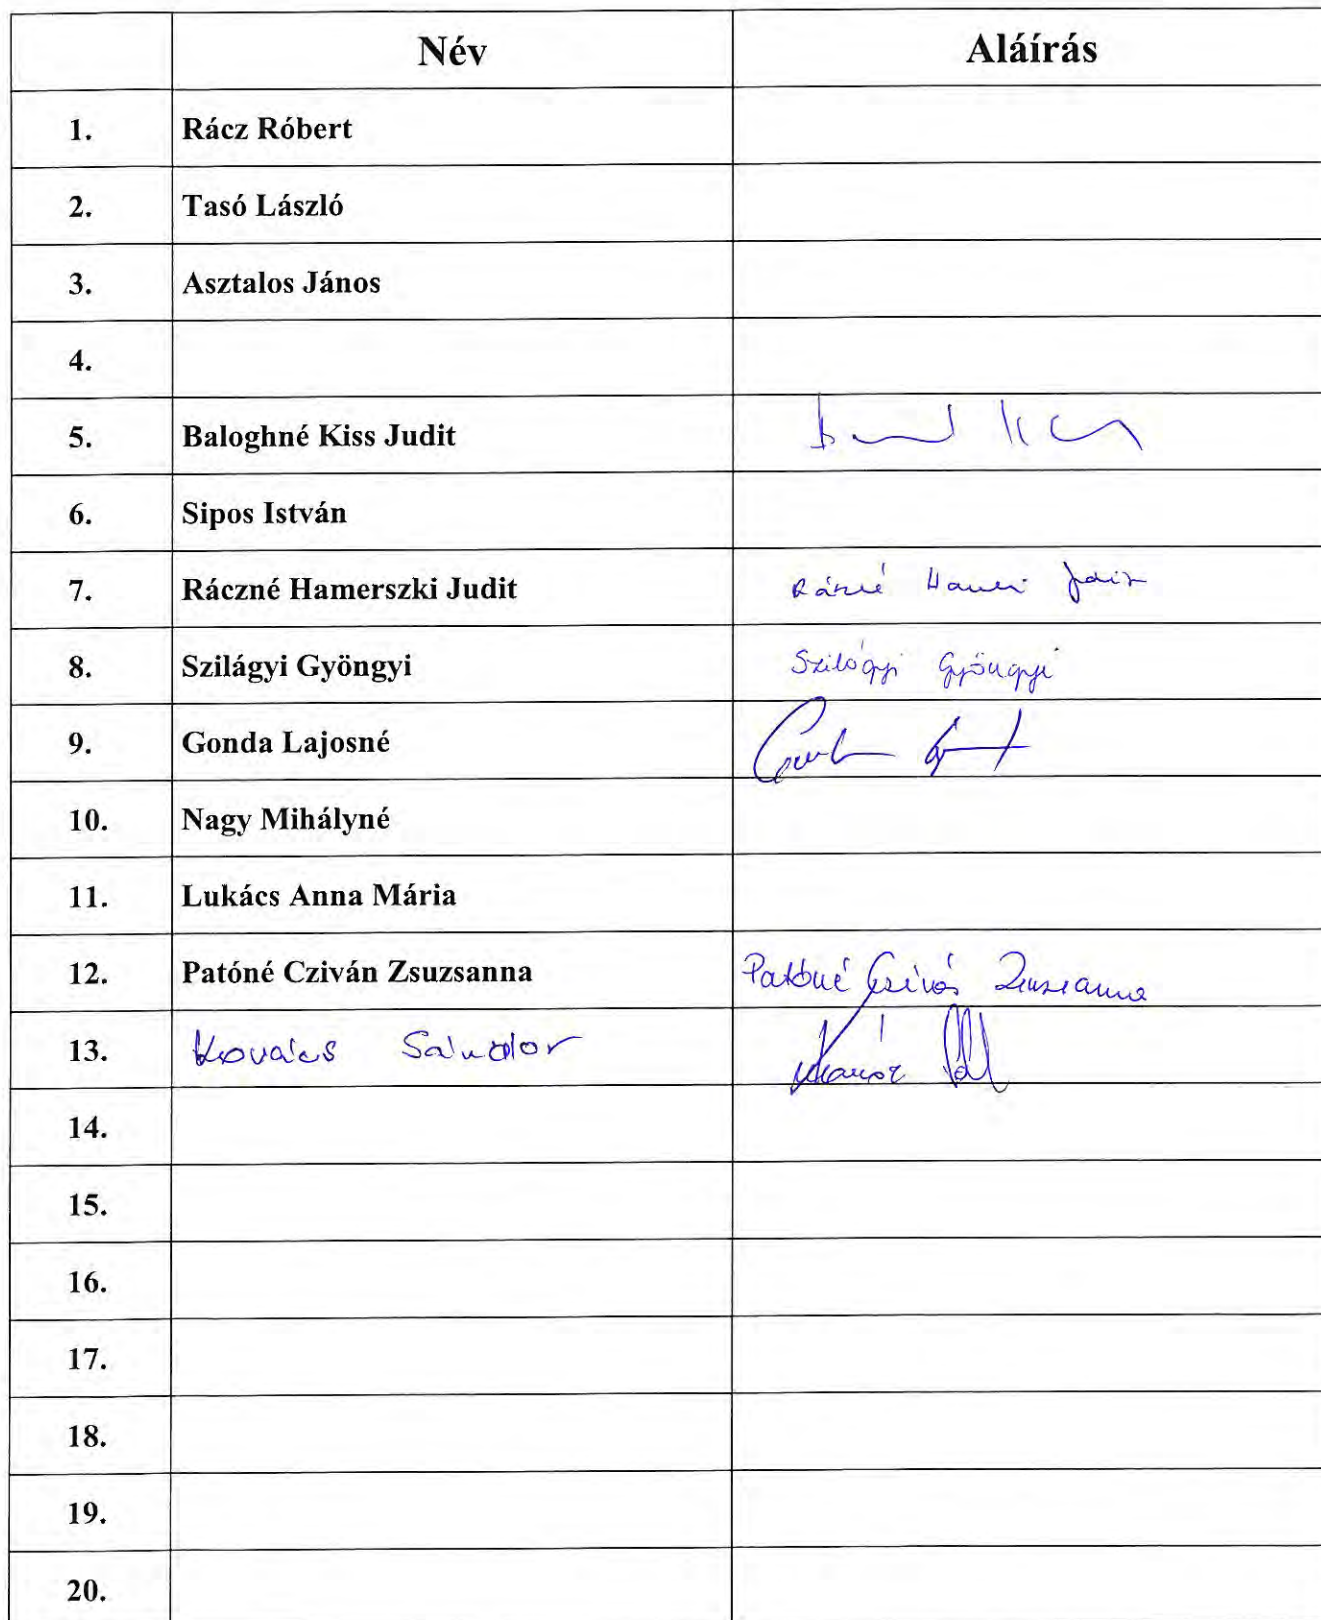 Név Aláírás
1. Rácz Róbert
2. Tasó László
3. Asztalos János
4.
5. Baloghné Kiss Judit
6. Sipos István
7. Ráczné Hamerszki Judit
8. Szilágyi Gyöngyi Szilágyi Gyöngyi
9. Gonda Lajosné
10. Nagy Mihályné
11. Lukács Anna Mária
12. Patóné Cziván Zsuzsanna Patóné Cziván Zsuzsanna
13. Kovács Sándor
14.
15.
16.
17.
18.
19.
20.